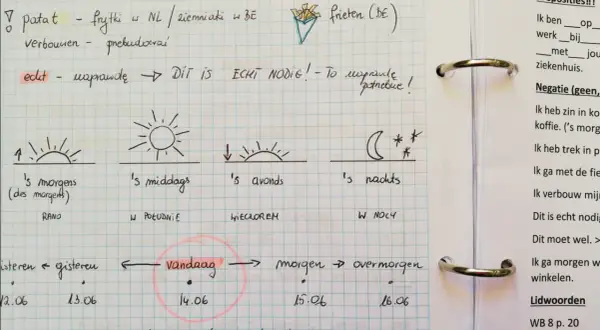 ! patat - frytki w NL / ziemniaki w BE frieten (BE)
verbouwen - przebudować
echt - naprawdę → DIT IS ECHT NODIG! - To naprawdę potrzebne!
's morgens 's middags 's avonds 's nachts
(des morgens)
RANO W POŁUDNIE WIECZOREM W NOCY
isteren ← gisteren ← vandaag → morgen → overmorgen
12.06 13.06 14.06 15.06 16.06
Ik ben ___op__
werk __bij___
___met___ jou
ziekenhuis.
Negatie (geen,
Ik heb zin in ko
koffie. ('s morg
Ik heb trek in p
Ik ga met de fie
Ik verbouw mij
Dit is echt nodi
Dit moet wel. >
Ik ga morgen w
winkelen.
Lidwoorden
WB 8 p. 20